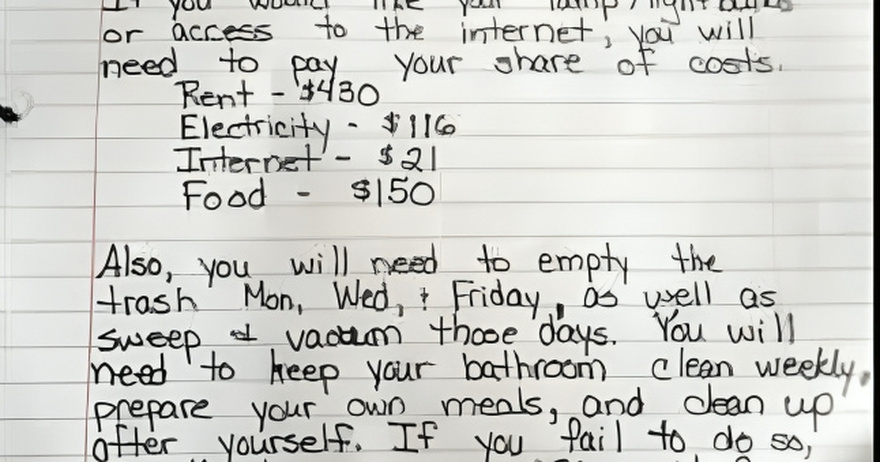 If you would like your lamp/light bulbs
or access to the internet, you will
need to pay your share of costs.
Rent - $430
Electricity - $116
Internet - $21
Food - $150
Also, you will need to empty the
trash Mon, Wed, & Friday, as well as
sweep & vacuum those days. You will
need to keep your bathroom clean weekly,
prepare your own meals, and clean up
after yourself. If you fail to do so,